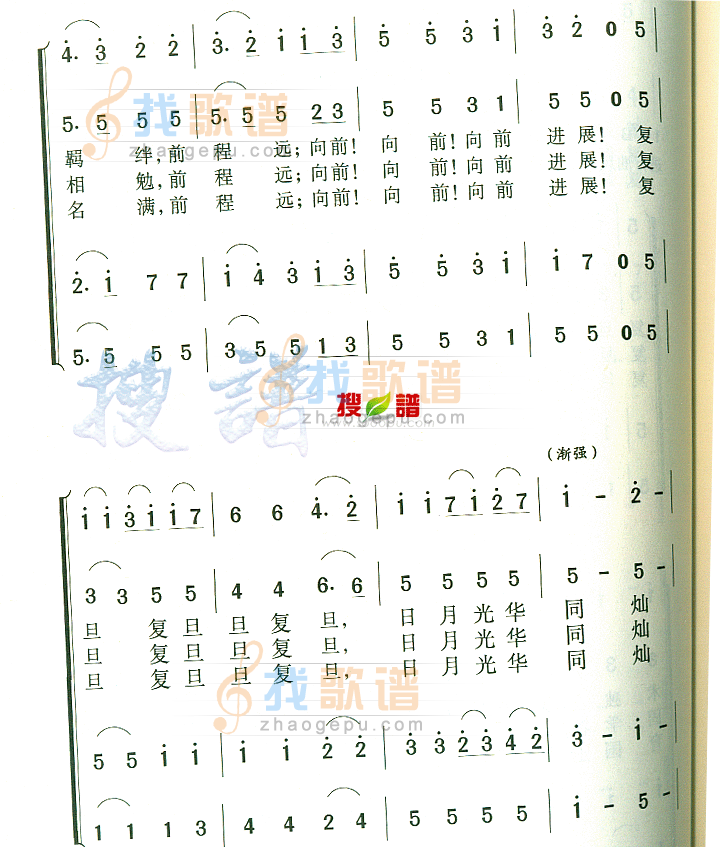 4. 3 2 2 | 3. 2 1 1 3 | 5 5 3 1 | 3 2 0 5 |
5. 5 5 5 | 5. 5 5 5 2 3 | 5 5 3 1 | 5 5 0 5
羁 绊,前 程 远;向前! 向 前!向前 进 展! 复
相 勉,前 程 远;向前! 向 前!向前 进 展! 复
名 满,前 程 远;向前! 向 前!向前 进 展! 复
2. 1 7 7 | 1 4 3 1 3 | 5 5 3 1 | 1 7 0 5
5. 5 5 5 | 3 5 5 1 3 | 5 5 3 1 | 5 5 0 5
搜譜
找歌谱
zhaogepu.com
搜譜
(渐强)
1 1 3 1 1 7 | 6 6 4. 2 | 1 1 7 1 2 7 | 1 - 2 - |
3 3 5 5 | 4 4 6. 6 | 5 5 5 5 | 5 - 5 - |
旦 复 旦 旦 复 旦, 日 月 光 华 同 灿
旦 复 旦 旦 复 旦, 日 月 光 华 同 灿
旦 复 旦 旦 复 旦, 日 月 光 华 同 灿
找歌谱
zhaogepu.com
5 5 1 1 | 1 1 2 2 | 3 3 2 3 4 2 | 3 - 1 - |
1 1 1 3 | 4 4 2 4 | 5 5 5 5 | 1 - 5 - |